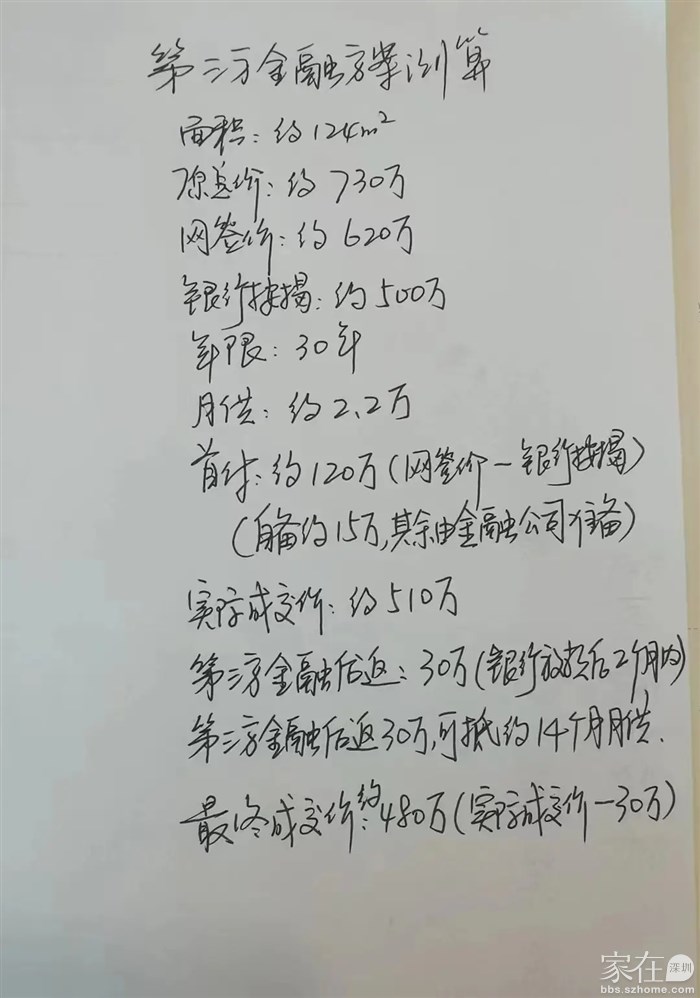 第三方金融方案测算
面积：约124m²
原总价：约730万
网签价：约620万
银行按揭：约500万
年限：30年
月供：约2.2万
首付：约120万（网签价－银行按揭）
（自备约15万，其余由金融公司准备）
实际成交价：约510万
第三方金融后返：30万（银行放款后2个月内）
第三方金融后返30万，可抵约14个月月供.
最终成交价：约480万（实际成交价－30万）
家在深圳
bbs.szhome.com